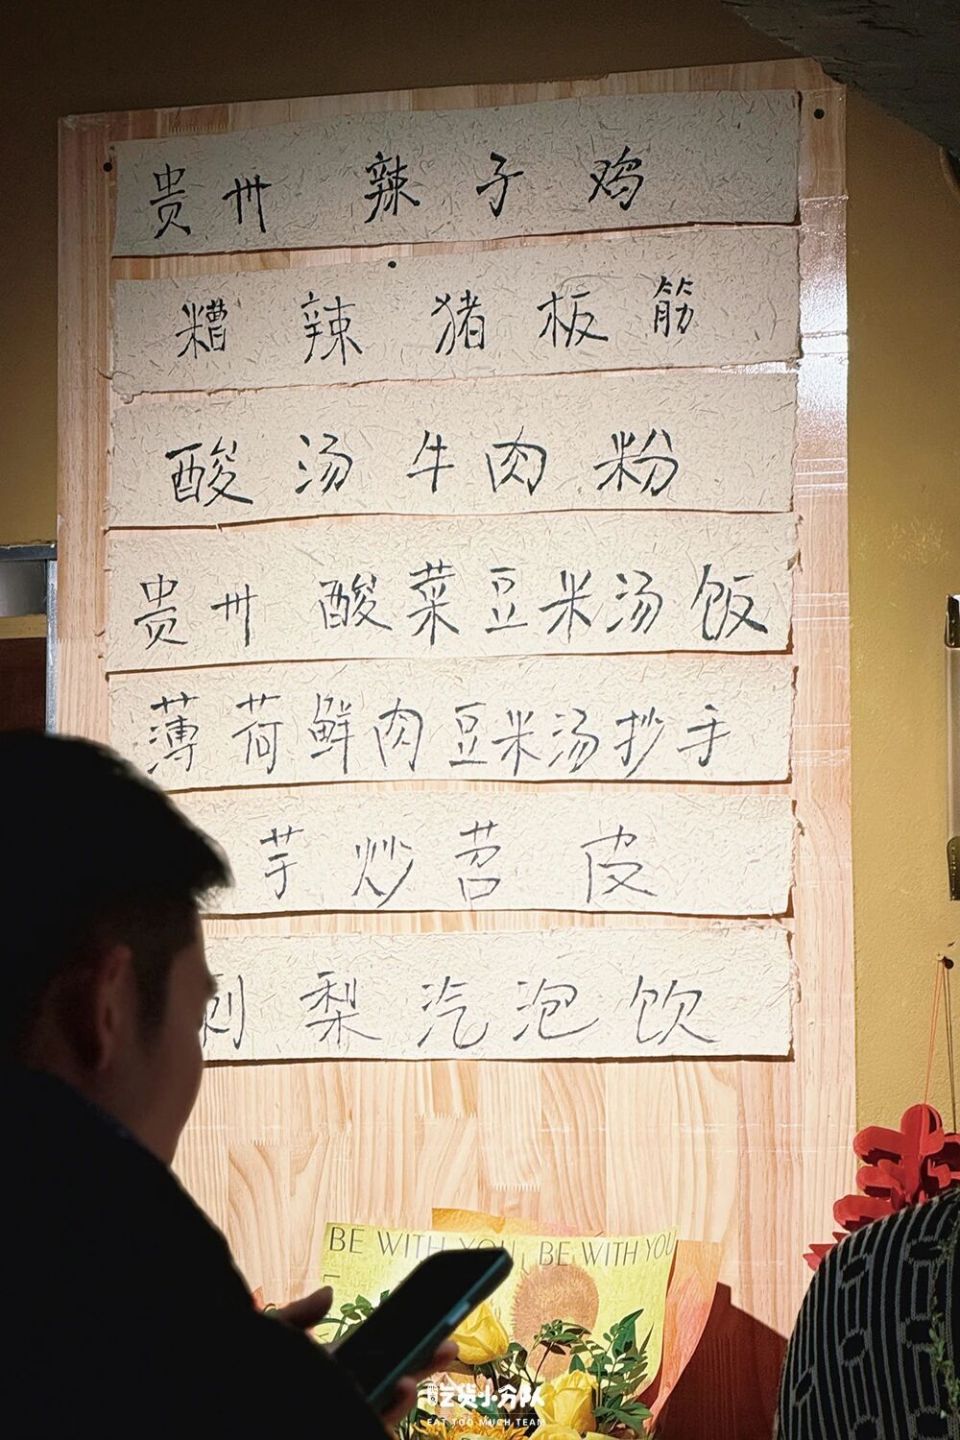 贵州 辣子鸡
糟辣猪板筋
酸汤牛肉粉
贵州 酸菜豆米汤饭
薄荷鲜肉豆米汤抄手
芋炒苕皮
刺梨汽泡饮
BE WITH YOU BE WITH YOU
吃货小分队
EAT TOO MUCH TEAM